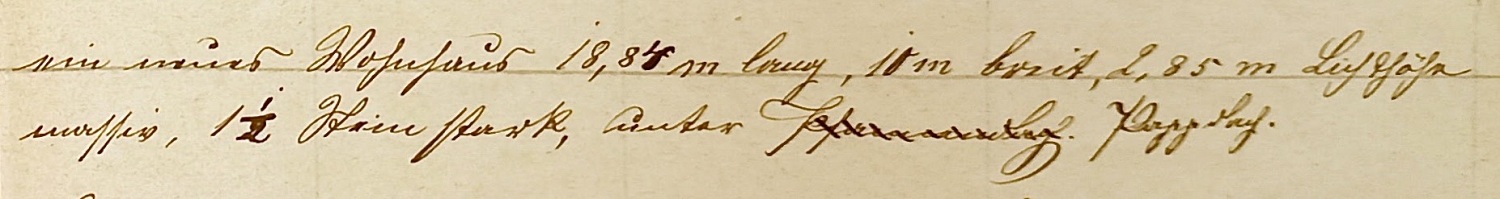 ein neues Wohnhaus 18,84 m lang, 10 m breit, 2,85 m Lichthöhe
massiv, 1½ Stein stark, unter Pappdach.